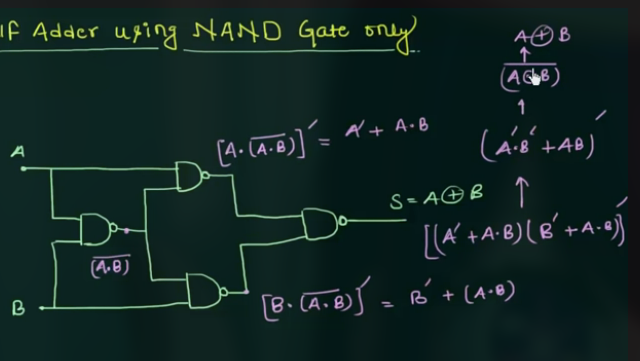 lf Adder using NAND Gate only
A ⊕ B
↑
(A⊙B)̅
↑
[A·(A·B)̅]′ = A′ + A·B
(A′·B′ + AB)′
↑
A
S = A ⊕ B
[(A′ + A·B)(B′ + A·B)]′
(A·B)̅
B
[B·(A·B)̅]′ = B′ + (A·B)